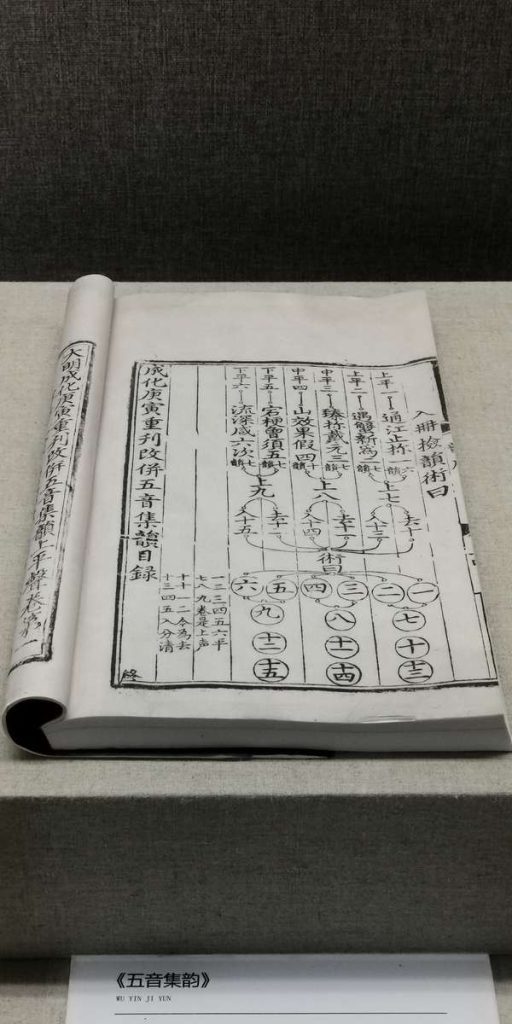 入冊檢韻術曰
上平一
通江止
上平二
遇蟹
中平三
臻
元三
中平四
山效果假四
下平五
宕梗曾
五
下平六
流深咸六次
上七
上八
上九
入十三
入十四
入十五
術曰
一
二
三
四
五
六
七
八
九
十
十一
十二
十三
十四
十五
一二三四五六平
七八九卷是上声
十十一二令為去
十三四五入分清
成化庚寅重刋改併五音集韻目錄
終
大明成化庚寅重刋改併五音集韻上平聲卷第一
《五音集韵》
WU YIN JI YUN